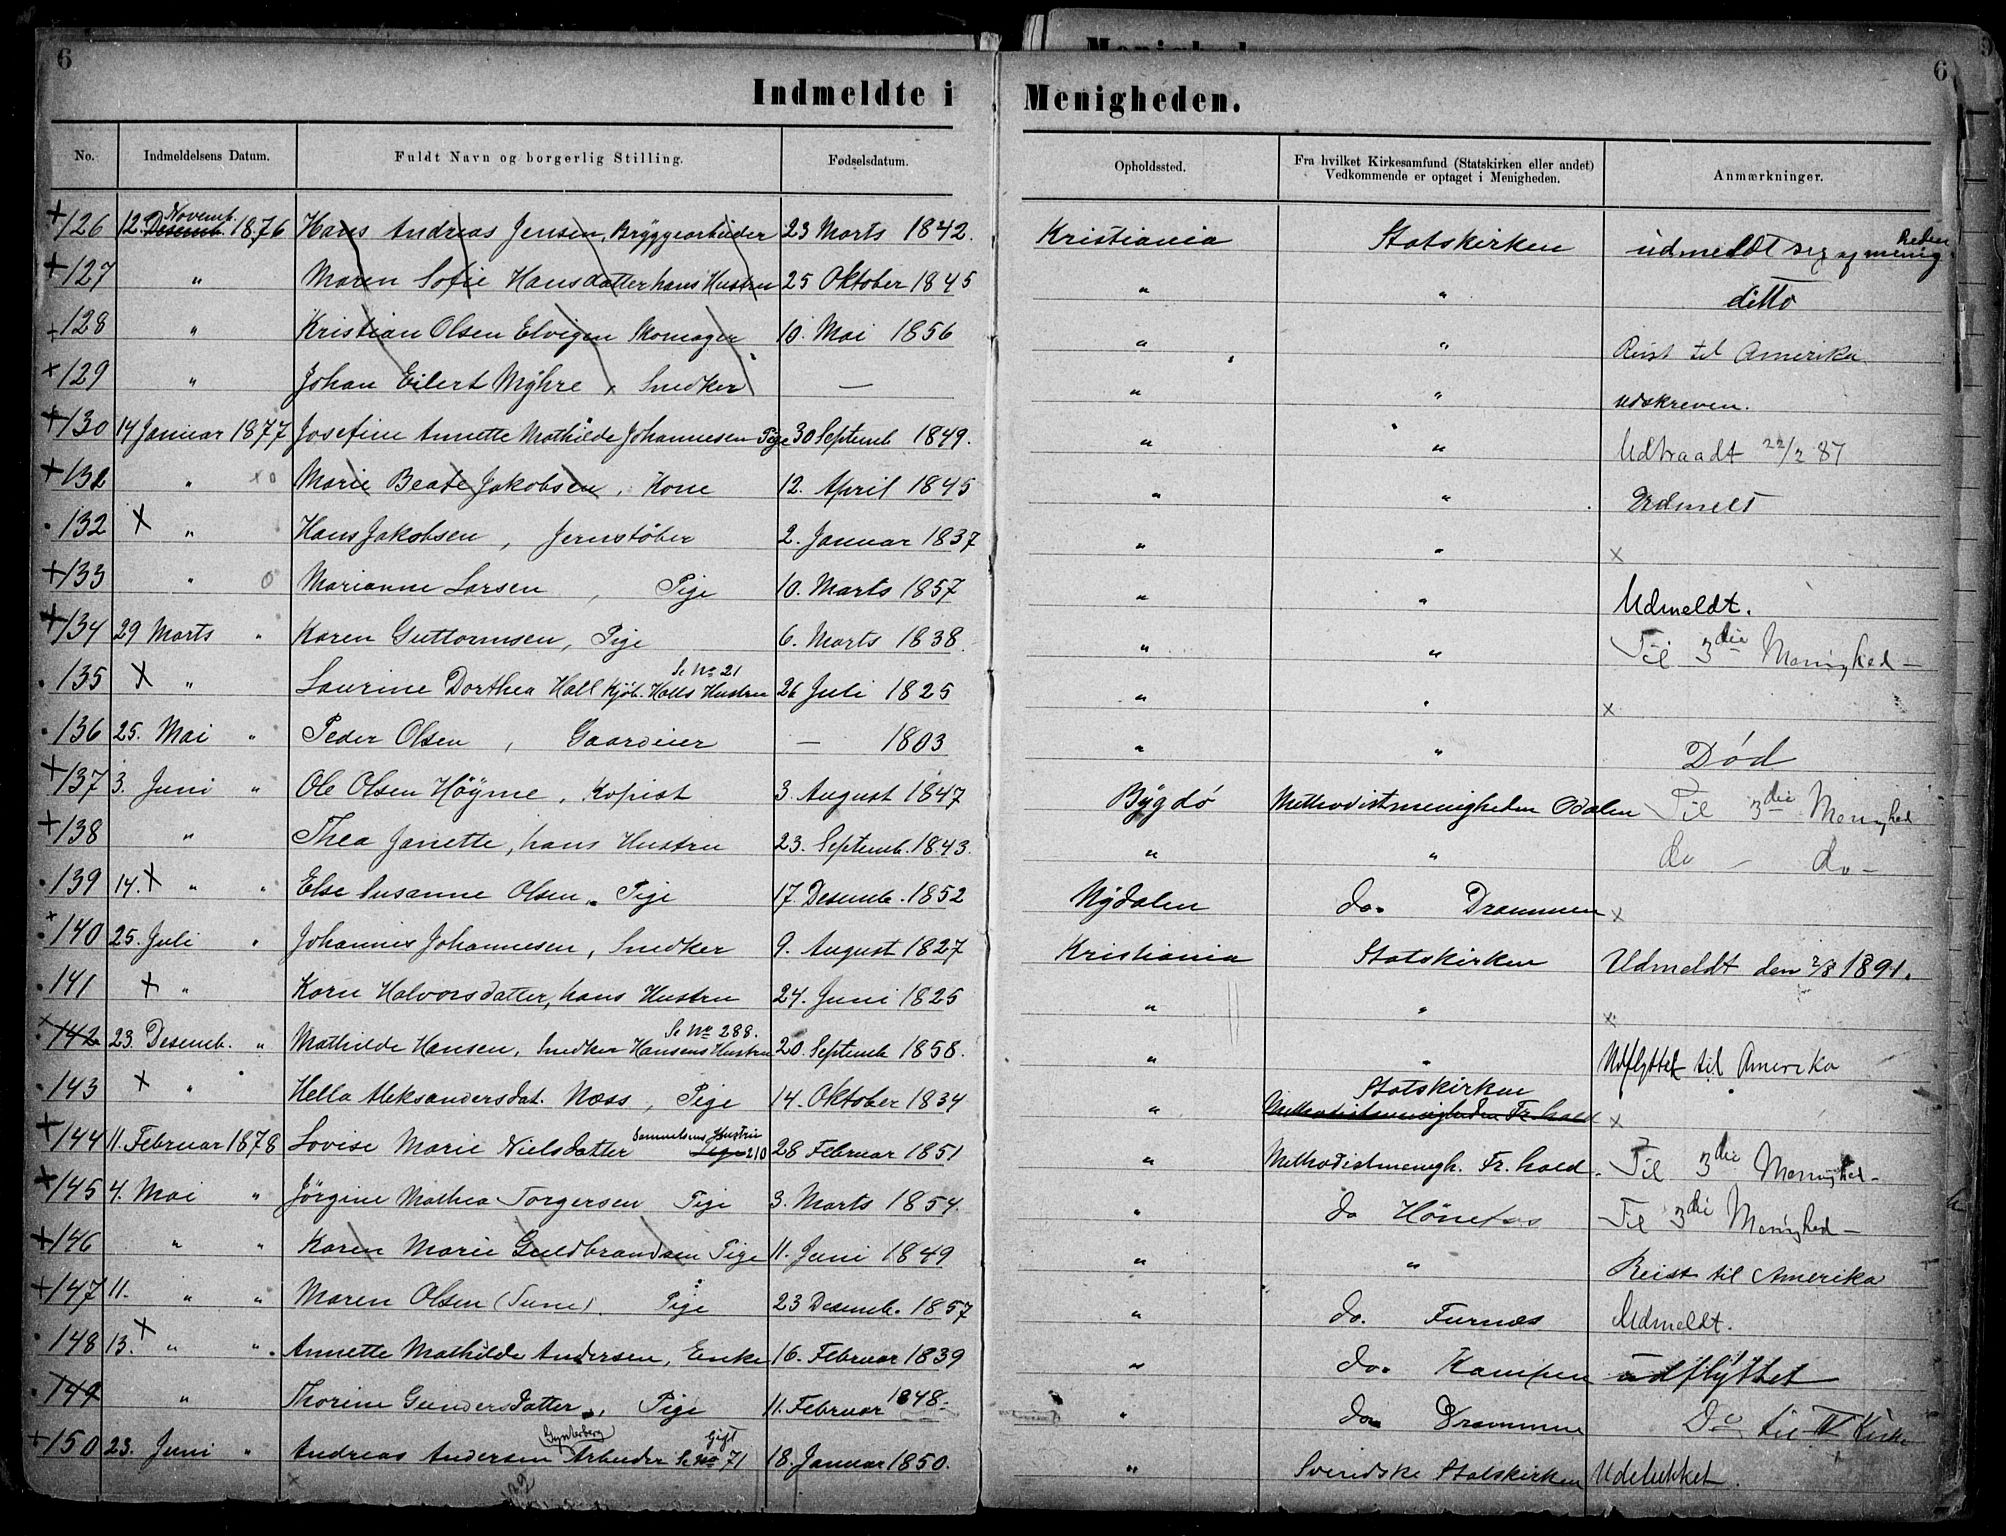 6
6
Indmeldte i Menigheden.
No. Indmeldelsens Datum. Fuldt Navn og borgerlig Stilling. Fødselsdatum. Opholdssted. Fra hvilket Kirkesamfund (Statskirken eller andet) Vedkommende er optaget i Menigheden. Anmærkninger.
+126 12. Desemb. Novemb. 1876 Hans Andreas Jensen, Bryggearbeider 23 Marts 1842. Kristiania Statskirken udmeldt sig af menig heden
+127 " Maren Sofie Hansdatter hans Hustru 25 Oktober 1845 " " ditto
128 " Kristian Olsen Elvigen Skomager 10. Mai 1856 " " Reist til Amerika
×129 " Johan Eilert Myhre, Snedker — " " udskreven.
+130 14 Januar 1877 Josefine Annette Mathilde Johannesen Pige 30 Septemb 1849. " " Udtraadt 22/2 87
+131 " ×0 Marie Beate Jakobsen, Kone 12. April 1845 " " Udmelt
132 × " Hans Jakobsen, Jernstøber 2. Januar 1837 " " ×
+133 " 0 Marianne Larsen, Pige 10. Marts 1857 " " Udmeldt.
+134 29 Marts " Karen Guttormsen, Pige 6. Marts 1838. " " Til 3die Menighed —
135 × " Laurine Dorthea Hall Kjøb. Halls Hustru Se No 21 26 Juli 1825 " " ×
136 25. Mai " Peder Olsen, Gaardeier — 1803 " " Død
+137 3. Juni " Ole Olsen Höyme, Kopist 3. August 1847 Bygdø Methodistmenigheden Odalen Til 3die Menighed
+138 " Thea Janette, hans Hustru 23. Septemb. 1843. " " do — do —
139 14. × " " Else Susanne Olsen, Pige 17. Desemb. 1852 Nydalen do. Drammen ×
×140 25. Juli " Johannes Johannesen, Snedker 9. August 1827 Kristiania Statskirken Udmeldt den 2/8 1891.
141 × " Kari Halvorsdatter, hans Hustru 24. Juni 1825 " " ×
×142 23. Desemb. " Mathilde Hansen, Snedker Hansens Hustru Se No 288. 20. Septemb 1858. " " Udflyttet til Amerika
143 × " " Hella Aleksandersdat. Næss, Pige 14. Oktober 1834 " Statskirken Methodistmenigheden Fr.hald ×
+144 11. Februar 1878 Lovise Marie Nielsdatter Samuelsens Hustru Pige 210 28 Februar 1851 " Methodistmenigh. Fr. hald. Til 3die Menighed —
×145 4. Mai " Jörgine Mathea Torgersen Pige 3. Marts 1854. " do Hönefos Til 3die Menighed —
+146 " " Karen Marie Guldbrandsen Pige 11. Juni 1849 " " Reist til Amerika
+147 11. " " Maren Olsen (Tune). Pige 23 Desemb. 1857 " do. Furnæs Udmeldt.
148 13. × " " Annette Mathilde Andersen, Enke 16. Februar 1839 " do. Kampen udflyttet
149 " Thorine Gundersdatter, Pige 11. Februar 1848. " do Drammen Do til IV Kirke
+150 23. Juni " Andreas Andersen Arbeider Se No 71 Gift 18. Januar 1850. " Svendske Statskirken Udelukket.